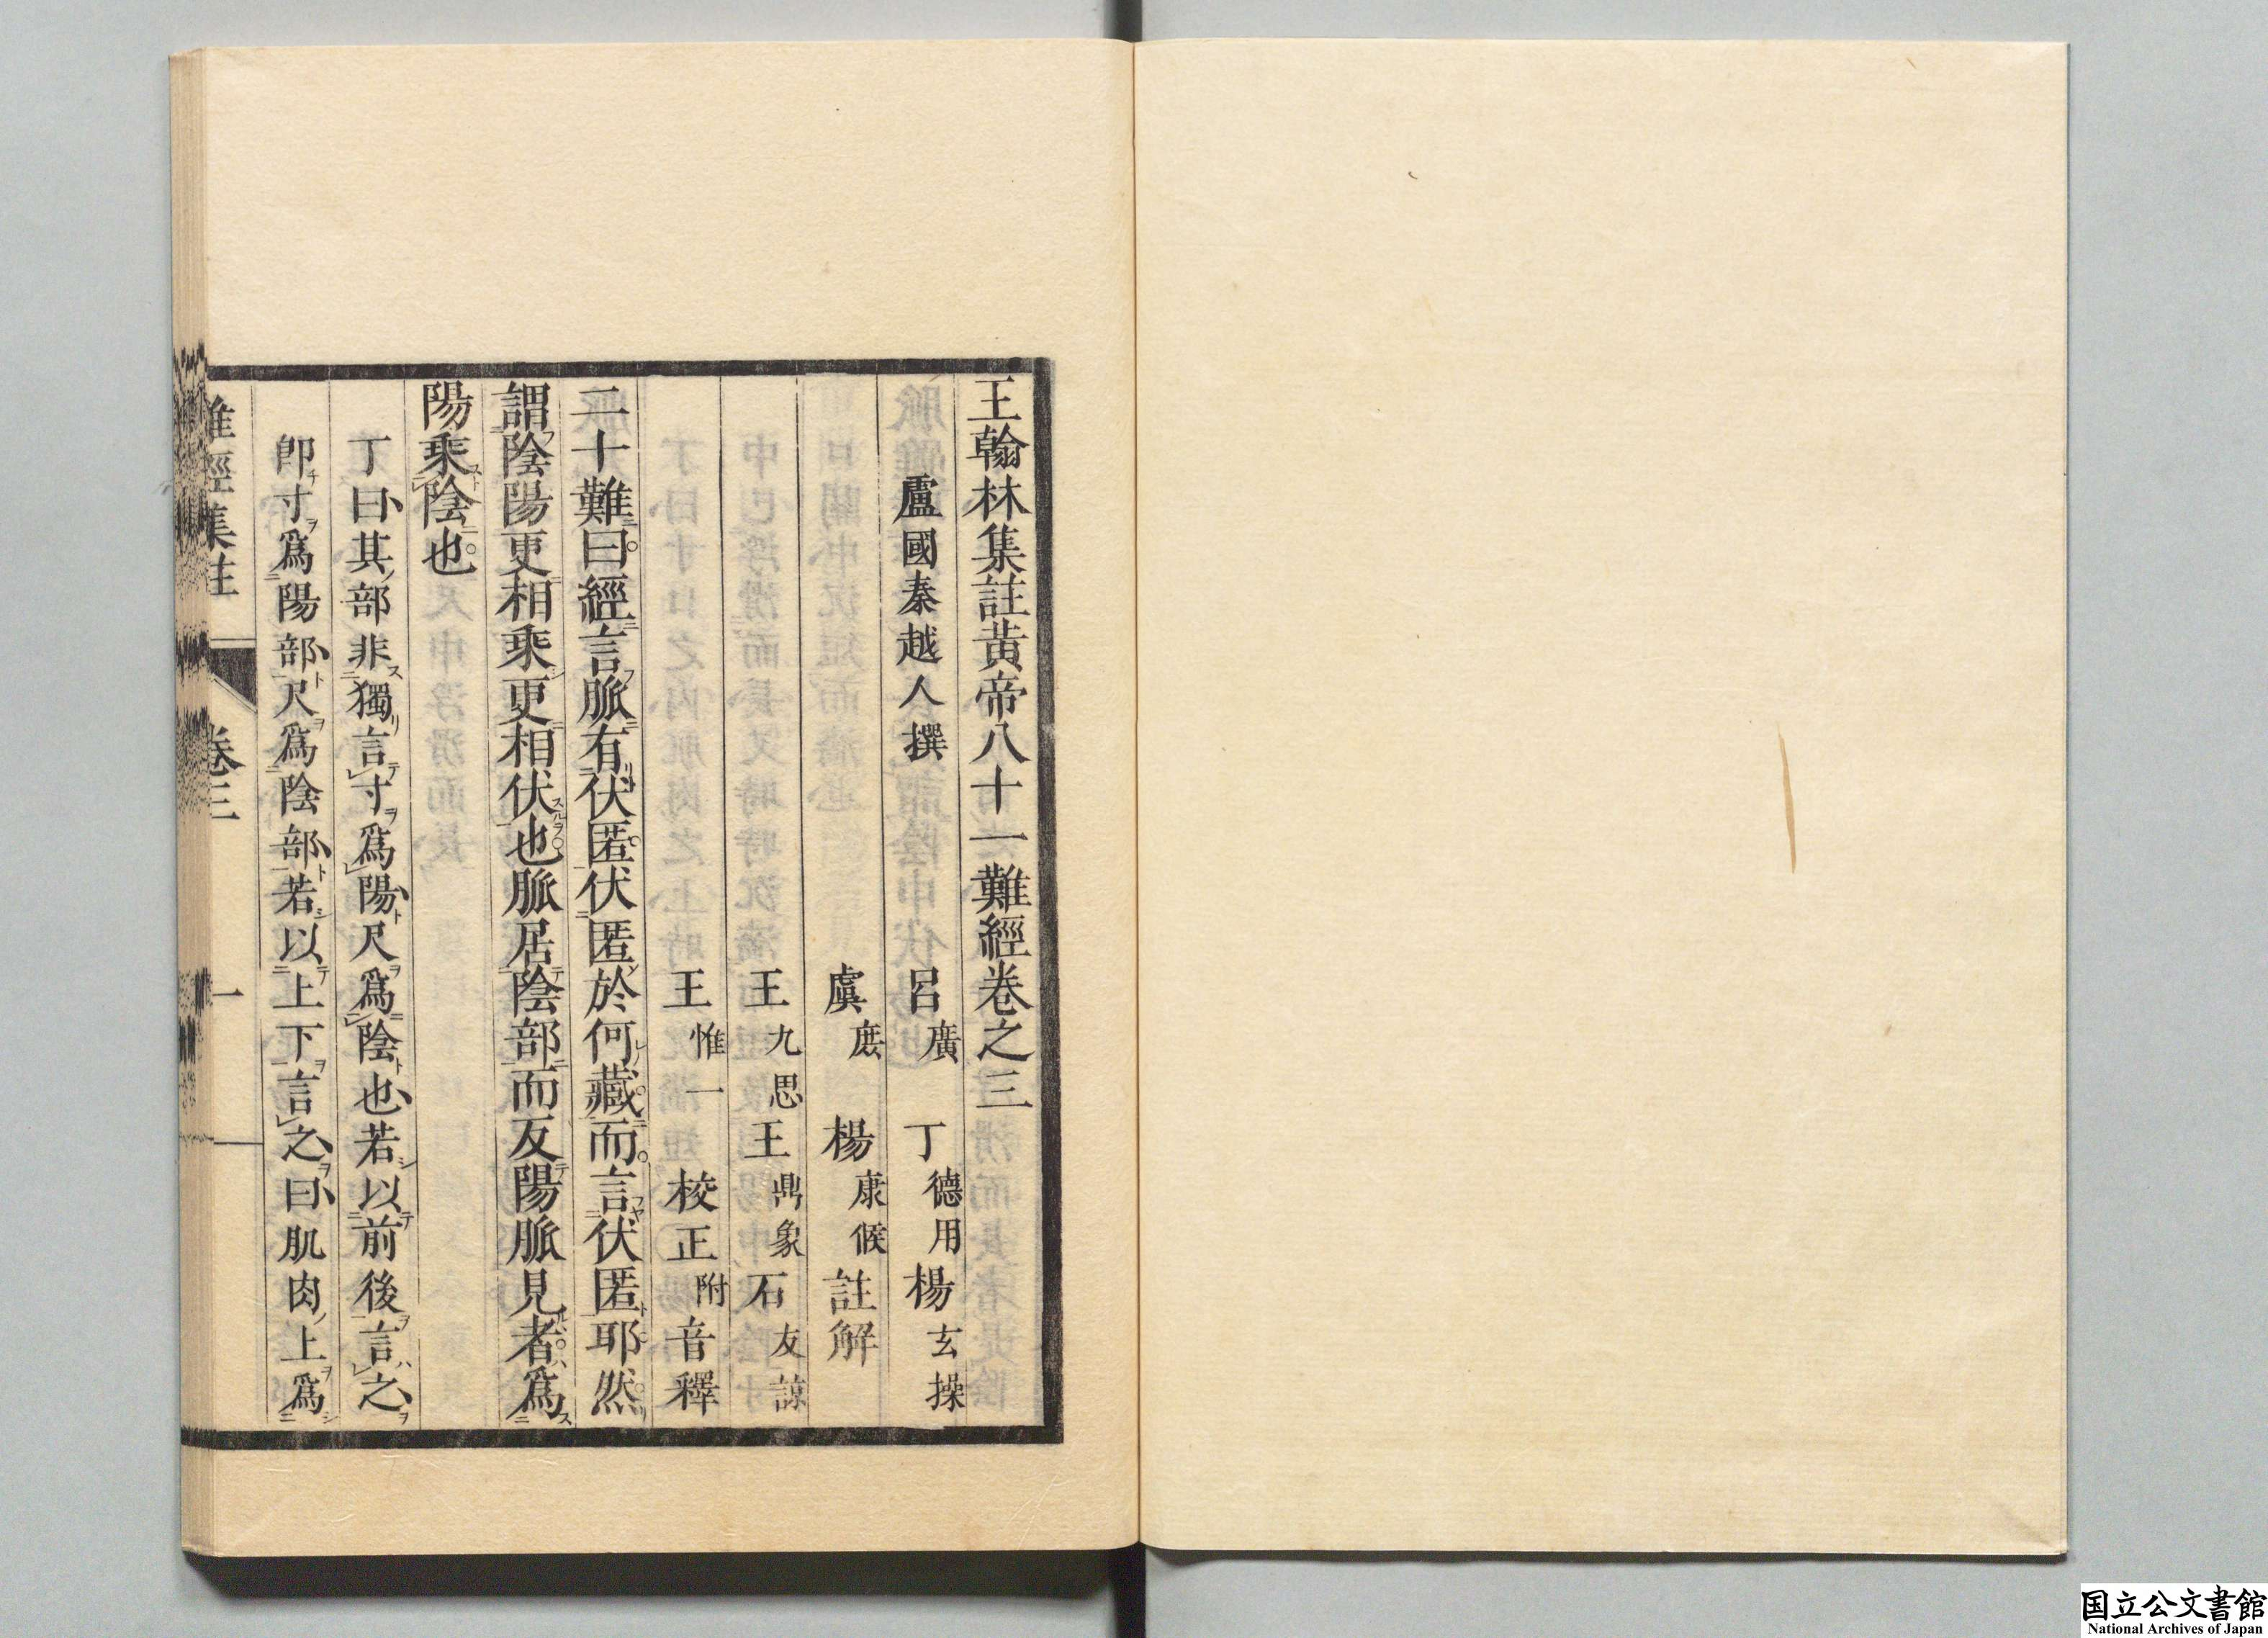 王翰林集註黃帝八十一難經卷之三
盧國秦越人撰
呂廣 丁德用 楊玄操
虞庶 楊康候 註解
王九思 王鼎象 石友諒
王惟一 校正附音釋
二十難曰經言脈有伏匿伏匿於何藏而言伏匿耶然
謂陰陽更相乘更相伏也脈居陰部而反陽脈見者爲
陽乘陰也
丁曰其部非獨言寸爲陽尺爲陰也若以前後言之
卽寸爲陽部尺爲陰部若以上下言之曰肌肉上爲
難經集註 卷三 一
国立公文書館
National Archives of Japan